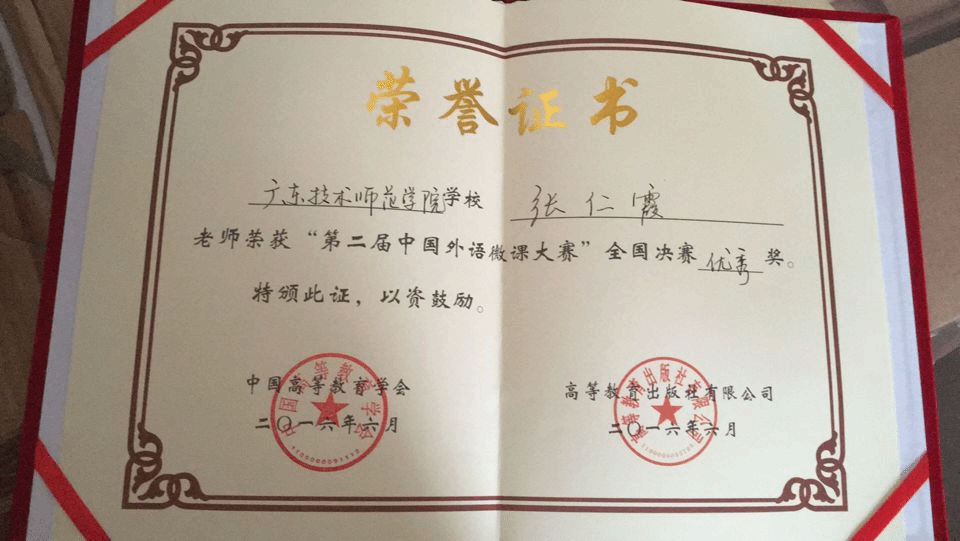 荣誉证书
广东技术师范学院学校 张仁霞
老师荣获“第二届中国外语微课大赛”全国决赛优秀奖。
特颁此证，以资鼓励。
中国高等教育学会 高等教育出版社有限公司
二〇一六年六月 二〇一六年六月
中国高等教育学会
高等教育出版社有限公司